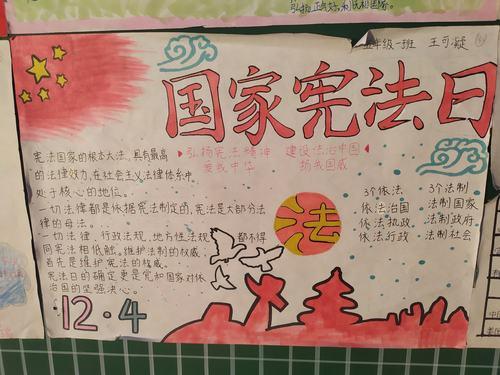 弘扬正能量,利民和国富。
五年级一班 王可凝
国家宪法日
弘扬宪法精神 建设法治中国
爱我中华 扬我国威
宪法国家的根本大法,具有最高
的法律效力,在社会主义法律体系中
处于核心的地位。
一切法律都是依据宪法制定的,宪法是大部分法
律的母法。
一切法律,行政法规,地方性法规 都不得
同宪法相低触。维护法制的权威,
首先是维护宪法的权威。
宪法日的确定更是党和国家对依
治国的坚强决心。
法
3个依法 3个法制
依法治国 法制国家
依法执政 法制政府
依法行政 法制社会
12·4